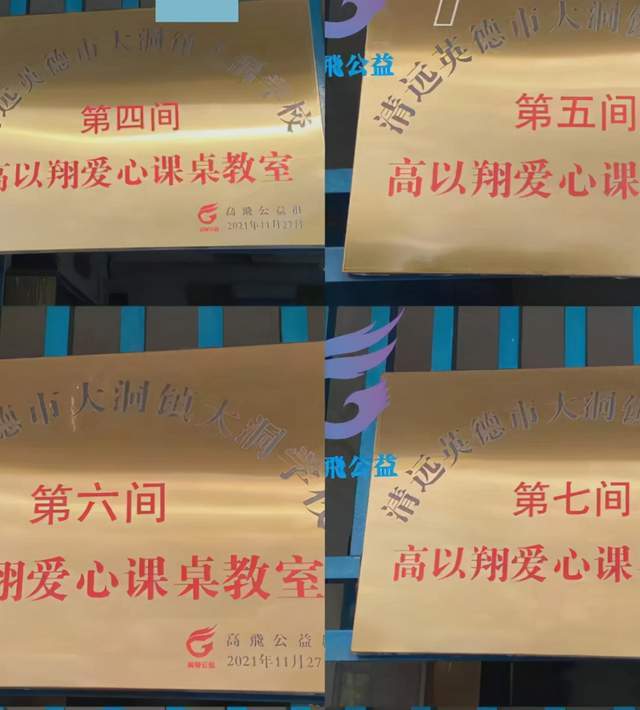 远英德市大洞镇大洞学校
第四间
高以翔爱心课桌教室
高飛公益
2021年11月27日
飛公益
清远英德市大洞镇
第五间
高以翔爱心课
德市大洞镇大洞学校
第六间
翔爱心课桌教室
高飛公益
高飛公益
2021年11月27
飛公益
清远英德市大洞镇
第七间
高以翔爱心课